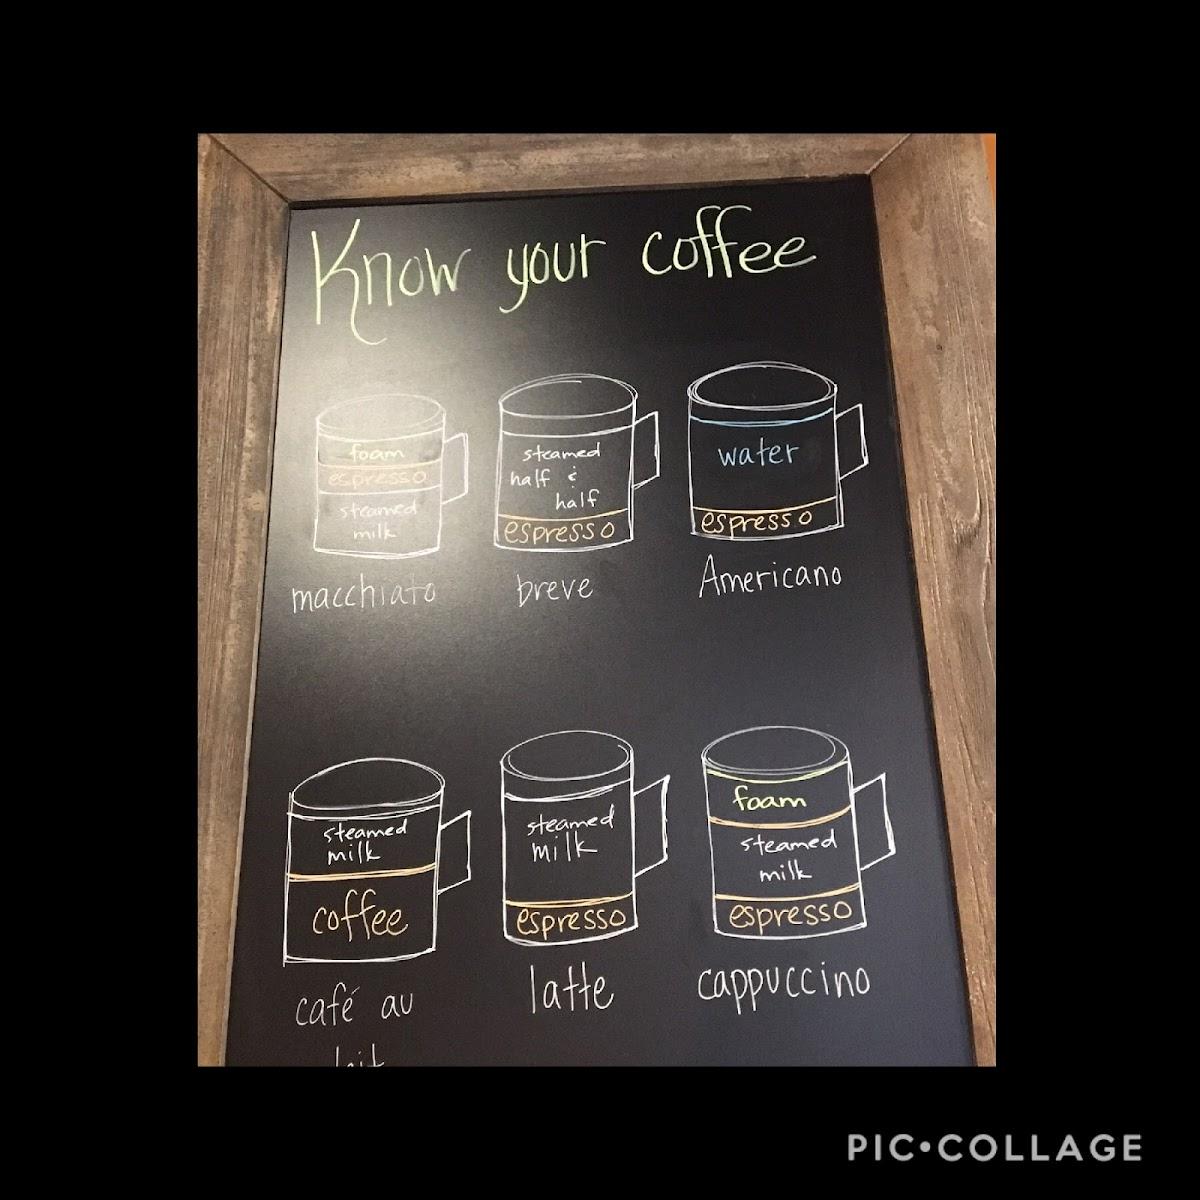 Know your coffee
foam
espresso
steamed
milk
macchiato
steamed
half &
half
espresso
breve
water
espresso
Americano
steamed
milk
coffee
café au
lait
steamed
milk
espresso
latte
foam
steamed
milk
espresso
cappuccino
PIC•COLLAGE